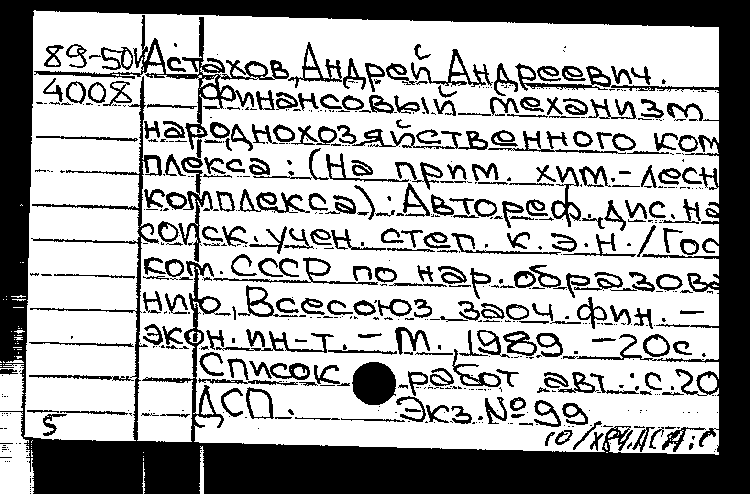 89-50 Астахов, Андрей Андреевич.
4008 Финансовый механизм
народнохозяйственного ком
плекса : (На прим. хим.-лесн
комплекса) : Автореф. дис. на
соиск. учен. степ. к.э.н. / Гос
ком. СССР по нар. образова
нию, Всесоюз. заоч. фин. –
экон. ин-т. – М., 1989. – 20с.
Список работ авт.: с. 20
ДСП. Экз. № 99
5